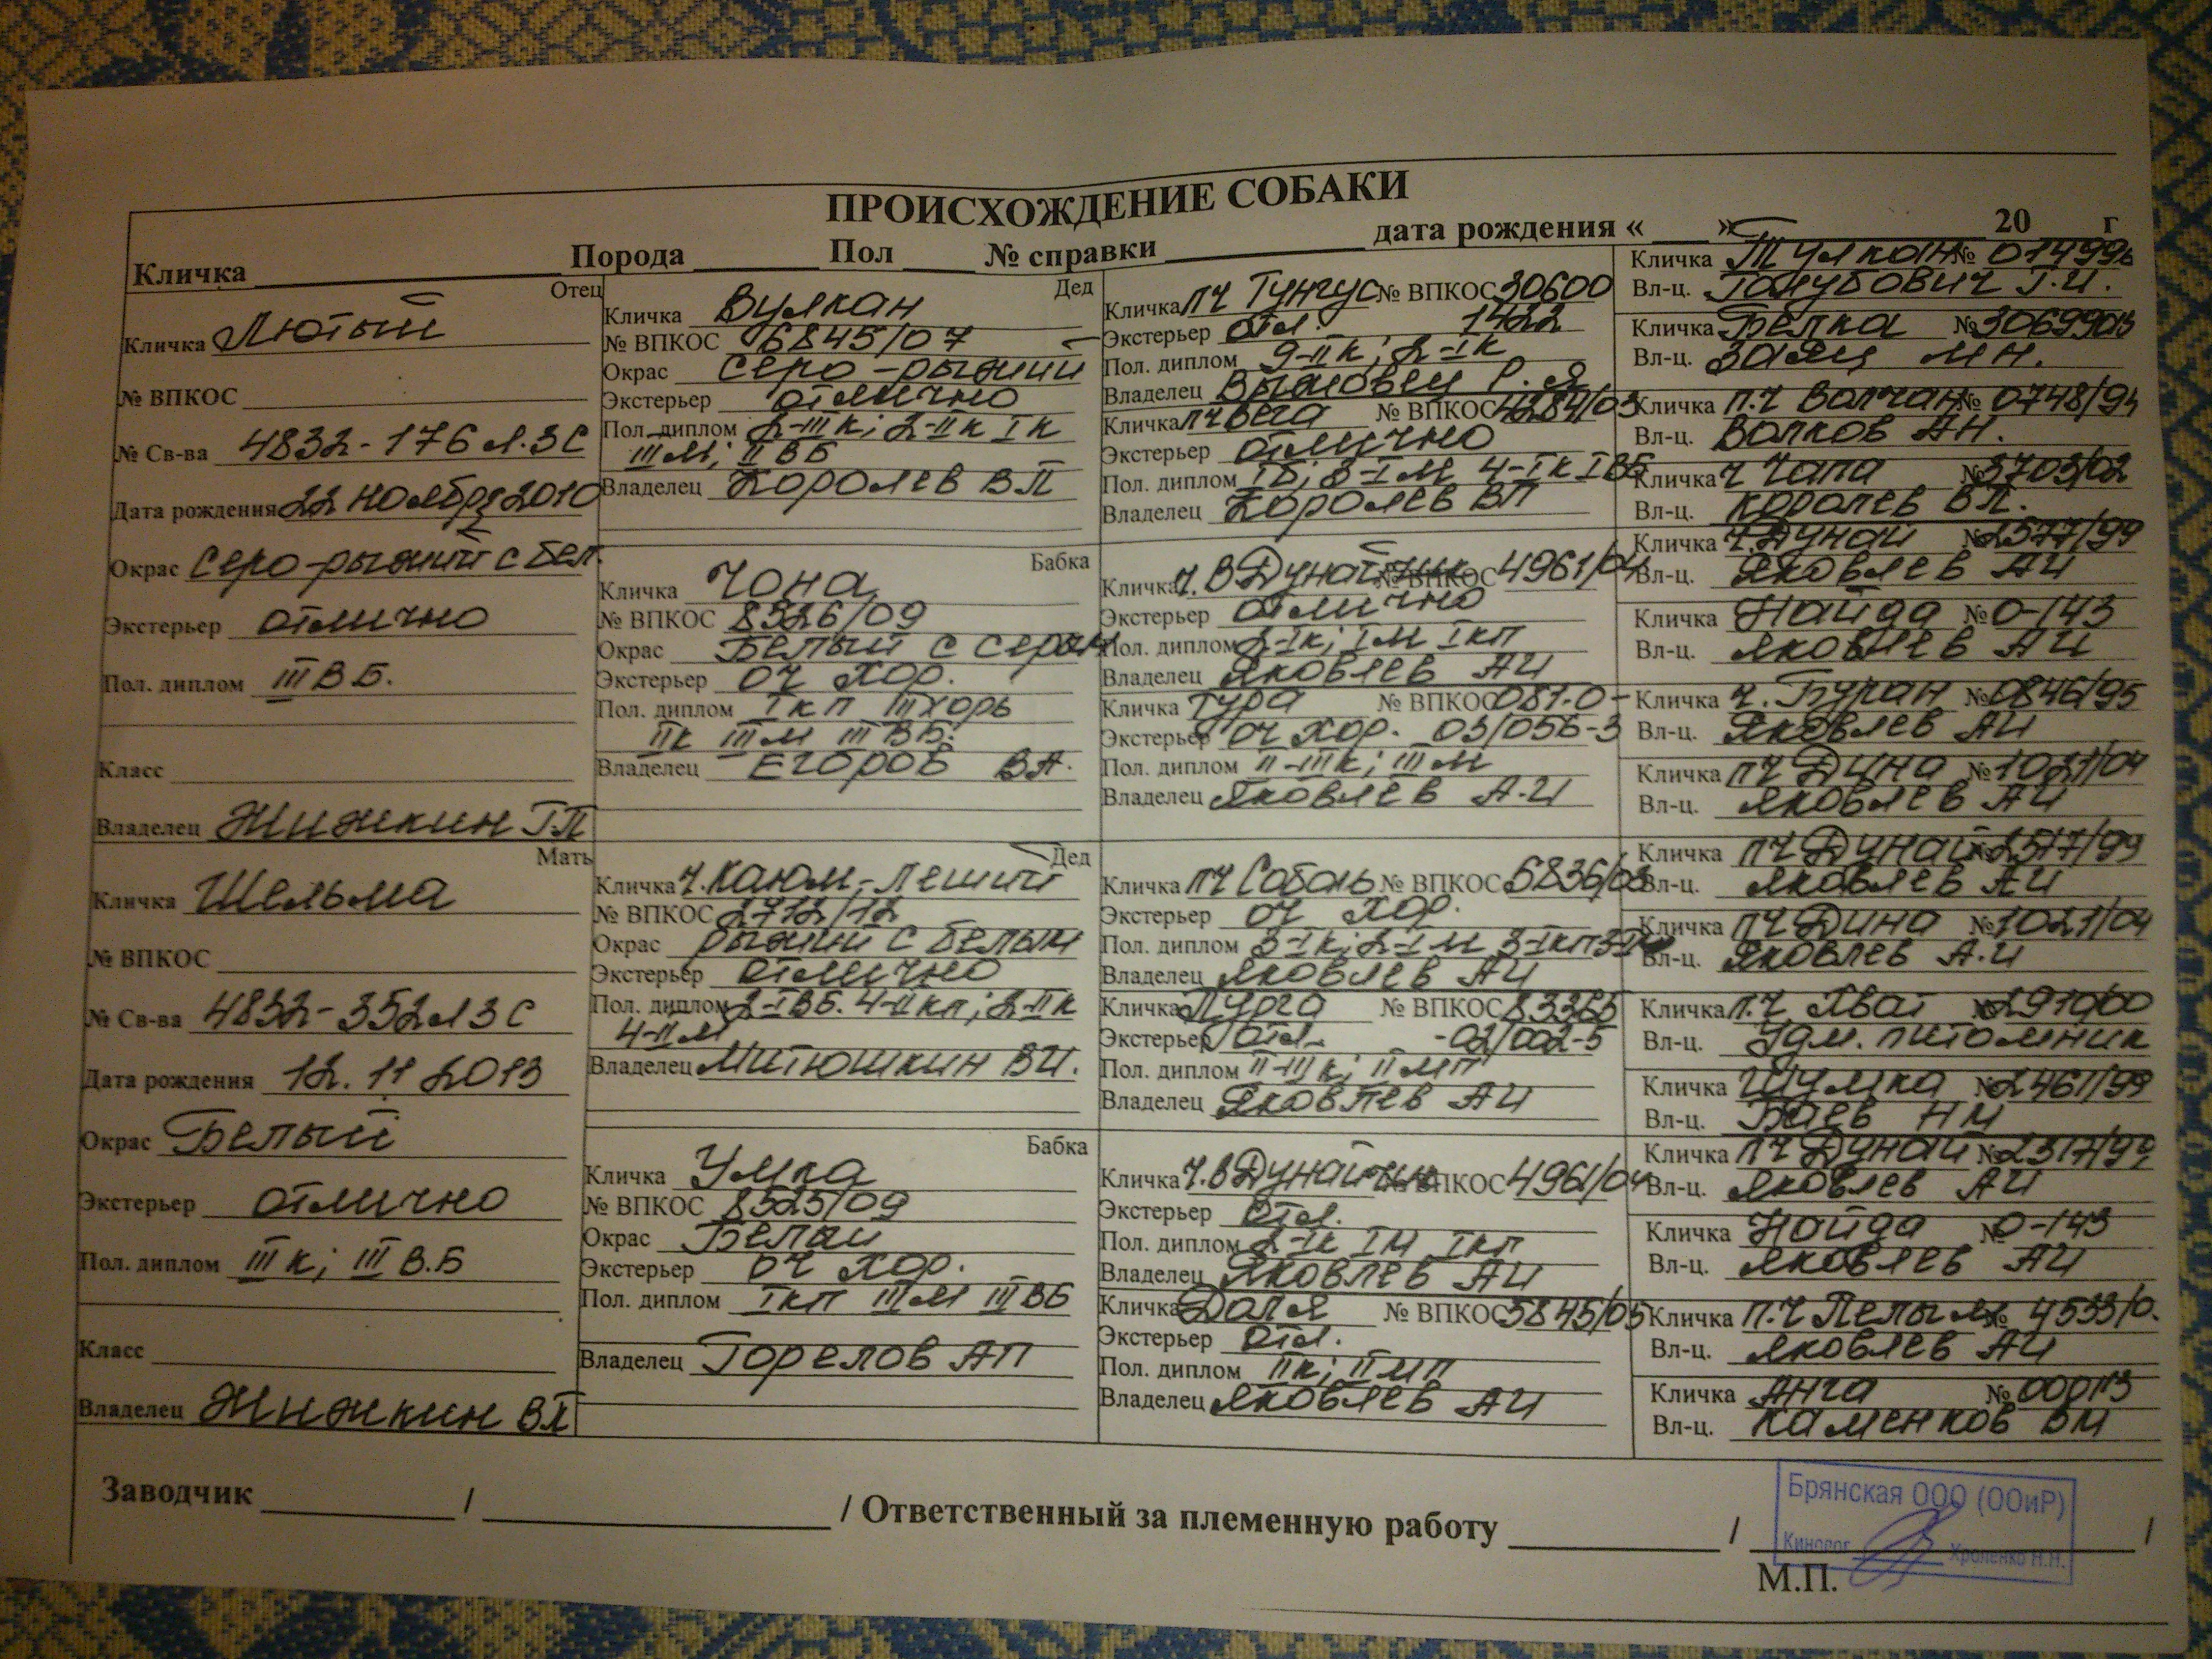 ПРОИСХОЖДЕНИЕ СОБАКИ
Кличка Порода Пол № справки дата рождения « » 20 г
Отец
Кличка Лютый
№ ВПКОС
№ Св-ва 4832-176 Л.З С
Дата рождения 22 ноября 2010
Окрас Серо-рыжий с бел.
Экстерьер отлично
Пол. диплом III В Б.
Класс
Владелец Жижкин Г.П
Мать
Кличка Шельма
№ ВПКОС
№ Св-ва 4832-352 Л З С
Дата рождения 12.11 2013
Окрас Белый
Экстерьер отлично
Пол. диплом III к; III В.Б
Класс
Владелец Жижкин ВП
Дед
Кличка Вулкан
№ ВПКОС 6845/07
Окрас серо-рыжий
Экстерьер отлично
Пол. диплом 2-III к; 2-II к I к
III М; II В Б
Владелец Королев В П
Бабка
Кличка Чона
№ ВПКОС 8526/09
Окрас Белый с серым
Экстерьер оч хор.
Пол. диплом I кп III хорь
II к III м III В Б.
Владелец Егоров ВА.
Дед
Кличка Ч. Каюм-Леший
№ ВПКОС 2712/12
Окрас рыжий с белым
Экстерьер отлично
Пол. диплом 2-I ВБ. 4-II кп; 2-II к
4-II М
Владелец Митюшкин ВИ.
Бабка
Кличка Умка
№ ВПКОС 8525/09
Окрас Белый
Экстерьер оч хор.
Пол. диплом I кп III М III ВБ
Владелец Горелов АП
Кличка пч Тунгус № ВПКОС 30600
Экстерьер отл. 1422
Пол. диплом 9-II к; 2-I к
Владелец Р. Я
Кличка пч Вега № ВПКОС 4284/03
Экстерьер отлично
Пол. диплом I Б; 8-I М 4-I к I ВБ
Владелец Королев ВП
Кличка Ч. В Дунайчик № ВПКОС 4961/04
Экстерьер отлично
Пол. диплом 2-I к; I М I кп
Владелец Яковлев АИ
Кличка Тура № ВПКОС 081-0-
Экстерьер оч хор. 03/056-3
Пол. диплом II-III к; III М
Владелец Яковлев А.И
Кличка пч Соболь № ВПКОС 6836/03
Экстерьер оч хор.
Пол. диплом 3-I к; 2-I М 3-I кп
Владелец Яковлев АИ
Кличка Пурга № ВПКОС
Экстерьер отл. -02/002-5
Пол. диплом II-III к; II МП
Владелец Яковлев АИ
Кличка Ч. В Дунайчик № ВПКОС 4961/04
Экстерьер отл.
Пол. диплом 2-I к I М I кп
Владелец Яковлев АИ
Кличка Даля № ВПКОС 5845/05
Экстерьер отл.
Пол. диплом II к; II МП
Владелец Яковлев АИ
Кличка Тулкан №
Вл-ц. Голубович Г.И.
Кличка Белка №
Вл-ц. Заяц М Н.
Кличка п.ч Волчан № 0748/94
Вл-ц. Волков АН.
Кличка ч Чапа № 3703/02
Вл-ц. Королев ВП.
Кличка ч. Дунай № 2577/99
Вл-ц. Яковлев АИ
Кличка Найда № 0-143
Вл-ц. Яковлев АИ
Кличка ч. Буран № 0846/95
Вл-ц. Яковлев АИ
Кличка пч Дина № 1021/04
Вл-ц. Яковлев АИ
Кличка пч Дунай № 2577/99
Вл-ц. Яковлев АИ
Кличка пч Дина № 1021/04
Вл-ц. Яковлев А.И
Кличка п.ч Хват № 2910/00
Вл-ц. Удм. питомник
Кличка Шумка № 2461/99
Вл-ц. Баев НМ
Кличка пч Дунай №
Вл-ц. Яковлев АИ
Кличка Найда № 0-143
Вл-ц. Яковлев АИ
Кличка п.ч Пелым № 4533/0.
Вл-ц. Яковлев АИ
Кличка Анга №
Вл-ц. Каменков ВМ
Заводчик / / Ответственный за племенную работу / /
М.П.
Брянская ООО (ООиР)
Кинолог Хроленко Н.Н.